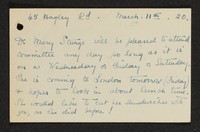 68 Hagley Rd. March. 11th. 20.
Dr Mary Sturge will be pleased to attend
Committee any day so long as it is
on a Wednesday or Friday or Saturday.
She is coming to London tomorrow, Friday
& hopes to look in about lunch time.
She would like to eat her sandwiches with
you, as she did before!